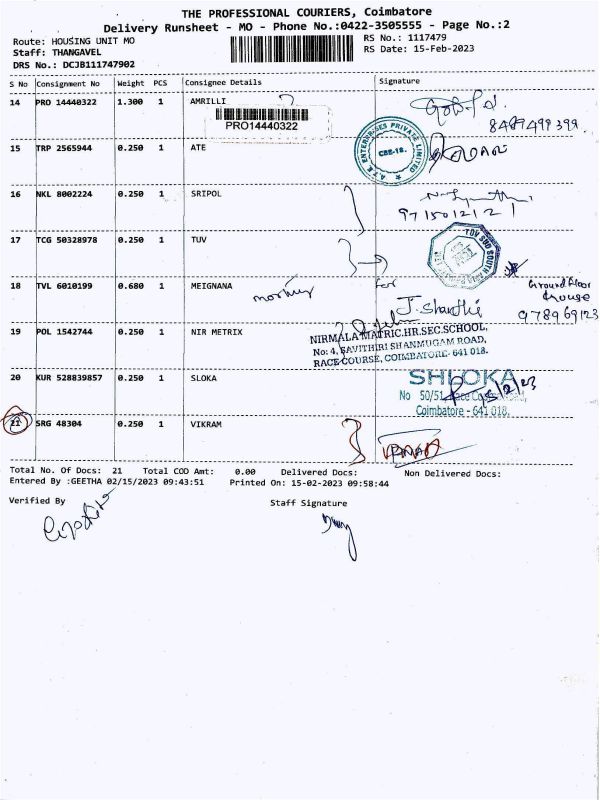 THE PROFESSIONAL COURIERS, Coimbatore
Delivery Runsheet - MO - Phone No.:0422-3505555 - Page No.:2
Route: HOUSING UNIT MO RS No.: 1117479
Staff: THANGAVEL RS Date: 15-Feb-2023
DRS No.: DCJB111747902
S No Consignment No Weight PCS Consignee Details Signature
14 PRO 14440322 1.300 1 AMRILLI
PRO14440322
15 TRP 2565944 0.250 1 ATE
ENTERPRISES PRIVATE LIMITED
CBE-18.
16 NKL 8002224 0.250 1 SRIPOL
17 TCG 50328978 0.250 1 TUV
TUV SUD SOUTH ASIA
18 TVL 6010199 0.680 1 MEIGNANA
for
Ground floor
House
978969123
J. Shanthi
19 POL 1542744 0.250 1 NIR METRIX
NIRMALA MATRIC.HR.SEC.SCHOOL,
No: 4, SAVITHIRI SHANMUGAM ROAD,
RACE COURSE, COIMBATORE- 641 018.
20 KUR 528839857 0.250 1 SLOKA
SHLOKA
No 50/51, Race Course Road,
Coimbatore - 641 018.
15/2/23
21 SRG 48304 0.250 1 VIKRAM
Total No. Of Docs: 21 Total COD Amt: 0.00 Delivered Docs: Non Delivered Docs:
Entered By :GEETHA 02/15/2023 09:43:51 Printed On: 15-02-2023 09:58:44
Verified By Staff Signature